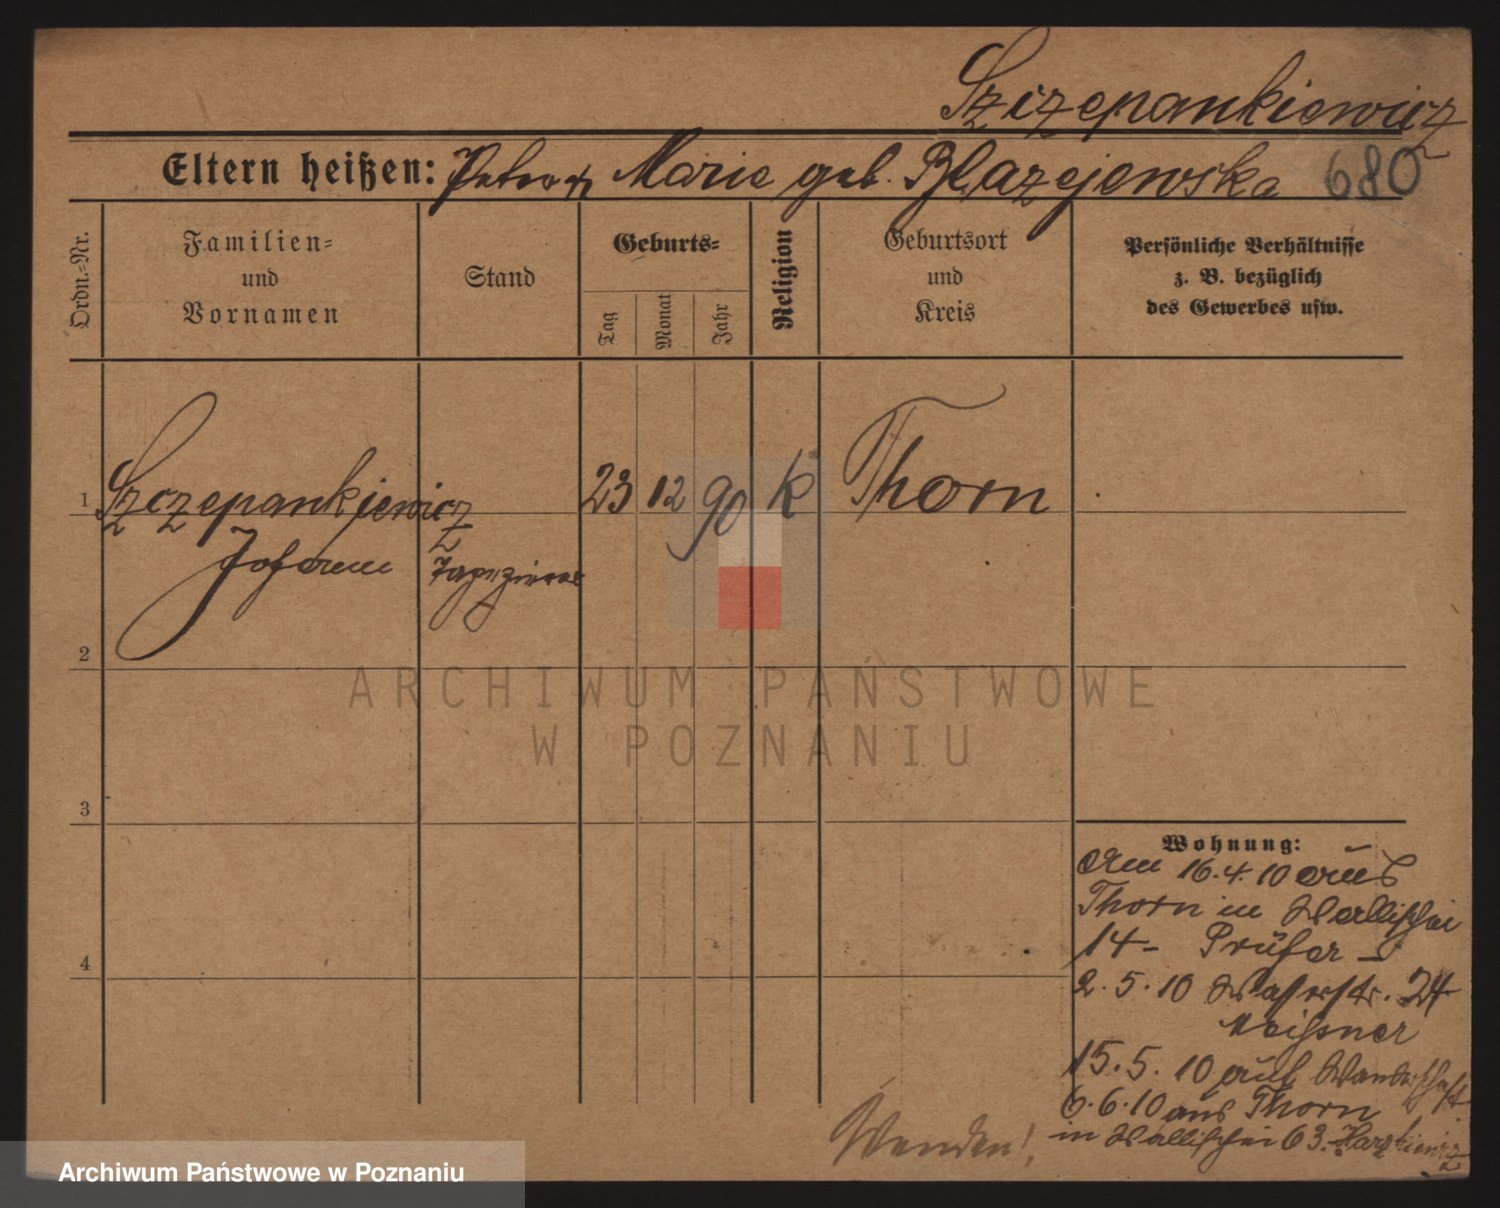 Szczepankiewicz
Eltern heißen: Peter u Marie geb. Blazejewska 680
Ordn.-Nr.
Familien-
und
Vornamen
Stand
Geburts-
Tag
Monat
Jahr
Religion
Geburtsort
und
Kreis
Persönliche Verhältnisse
z. B. bezüglich
des Gewerbes usw.
1 Szczepankiewicz 23 12 90 k Thorn
Johann Tapezierer
2
3
4
Wohnung:
Am 16.4.10 aus
Thorn in Wallischei
14- Prüfer -
2.5.10 Wasserstr. 24
Meißner
15.5.10 auf Wanderschaft
6.6.10 aus Thorn
in Wallischei 63.
Wenden!
ARCHIWUM PAŃSTWOWE
W POZNANIU
Archiwum Państwowe w Poznaniu